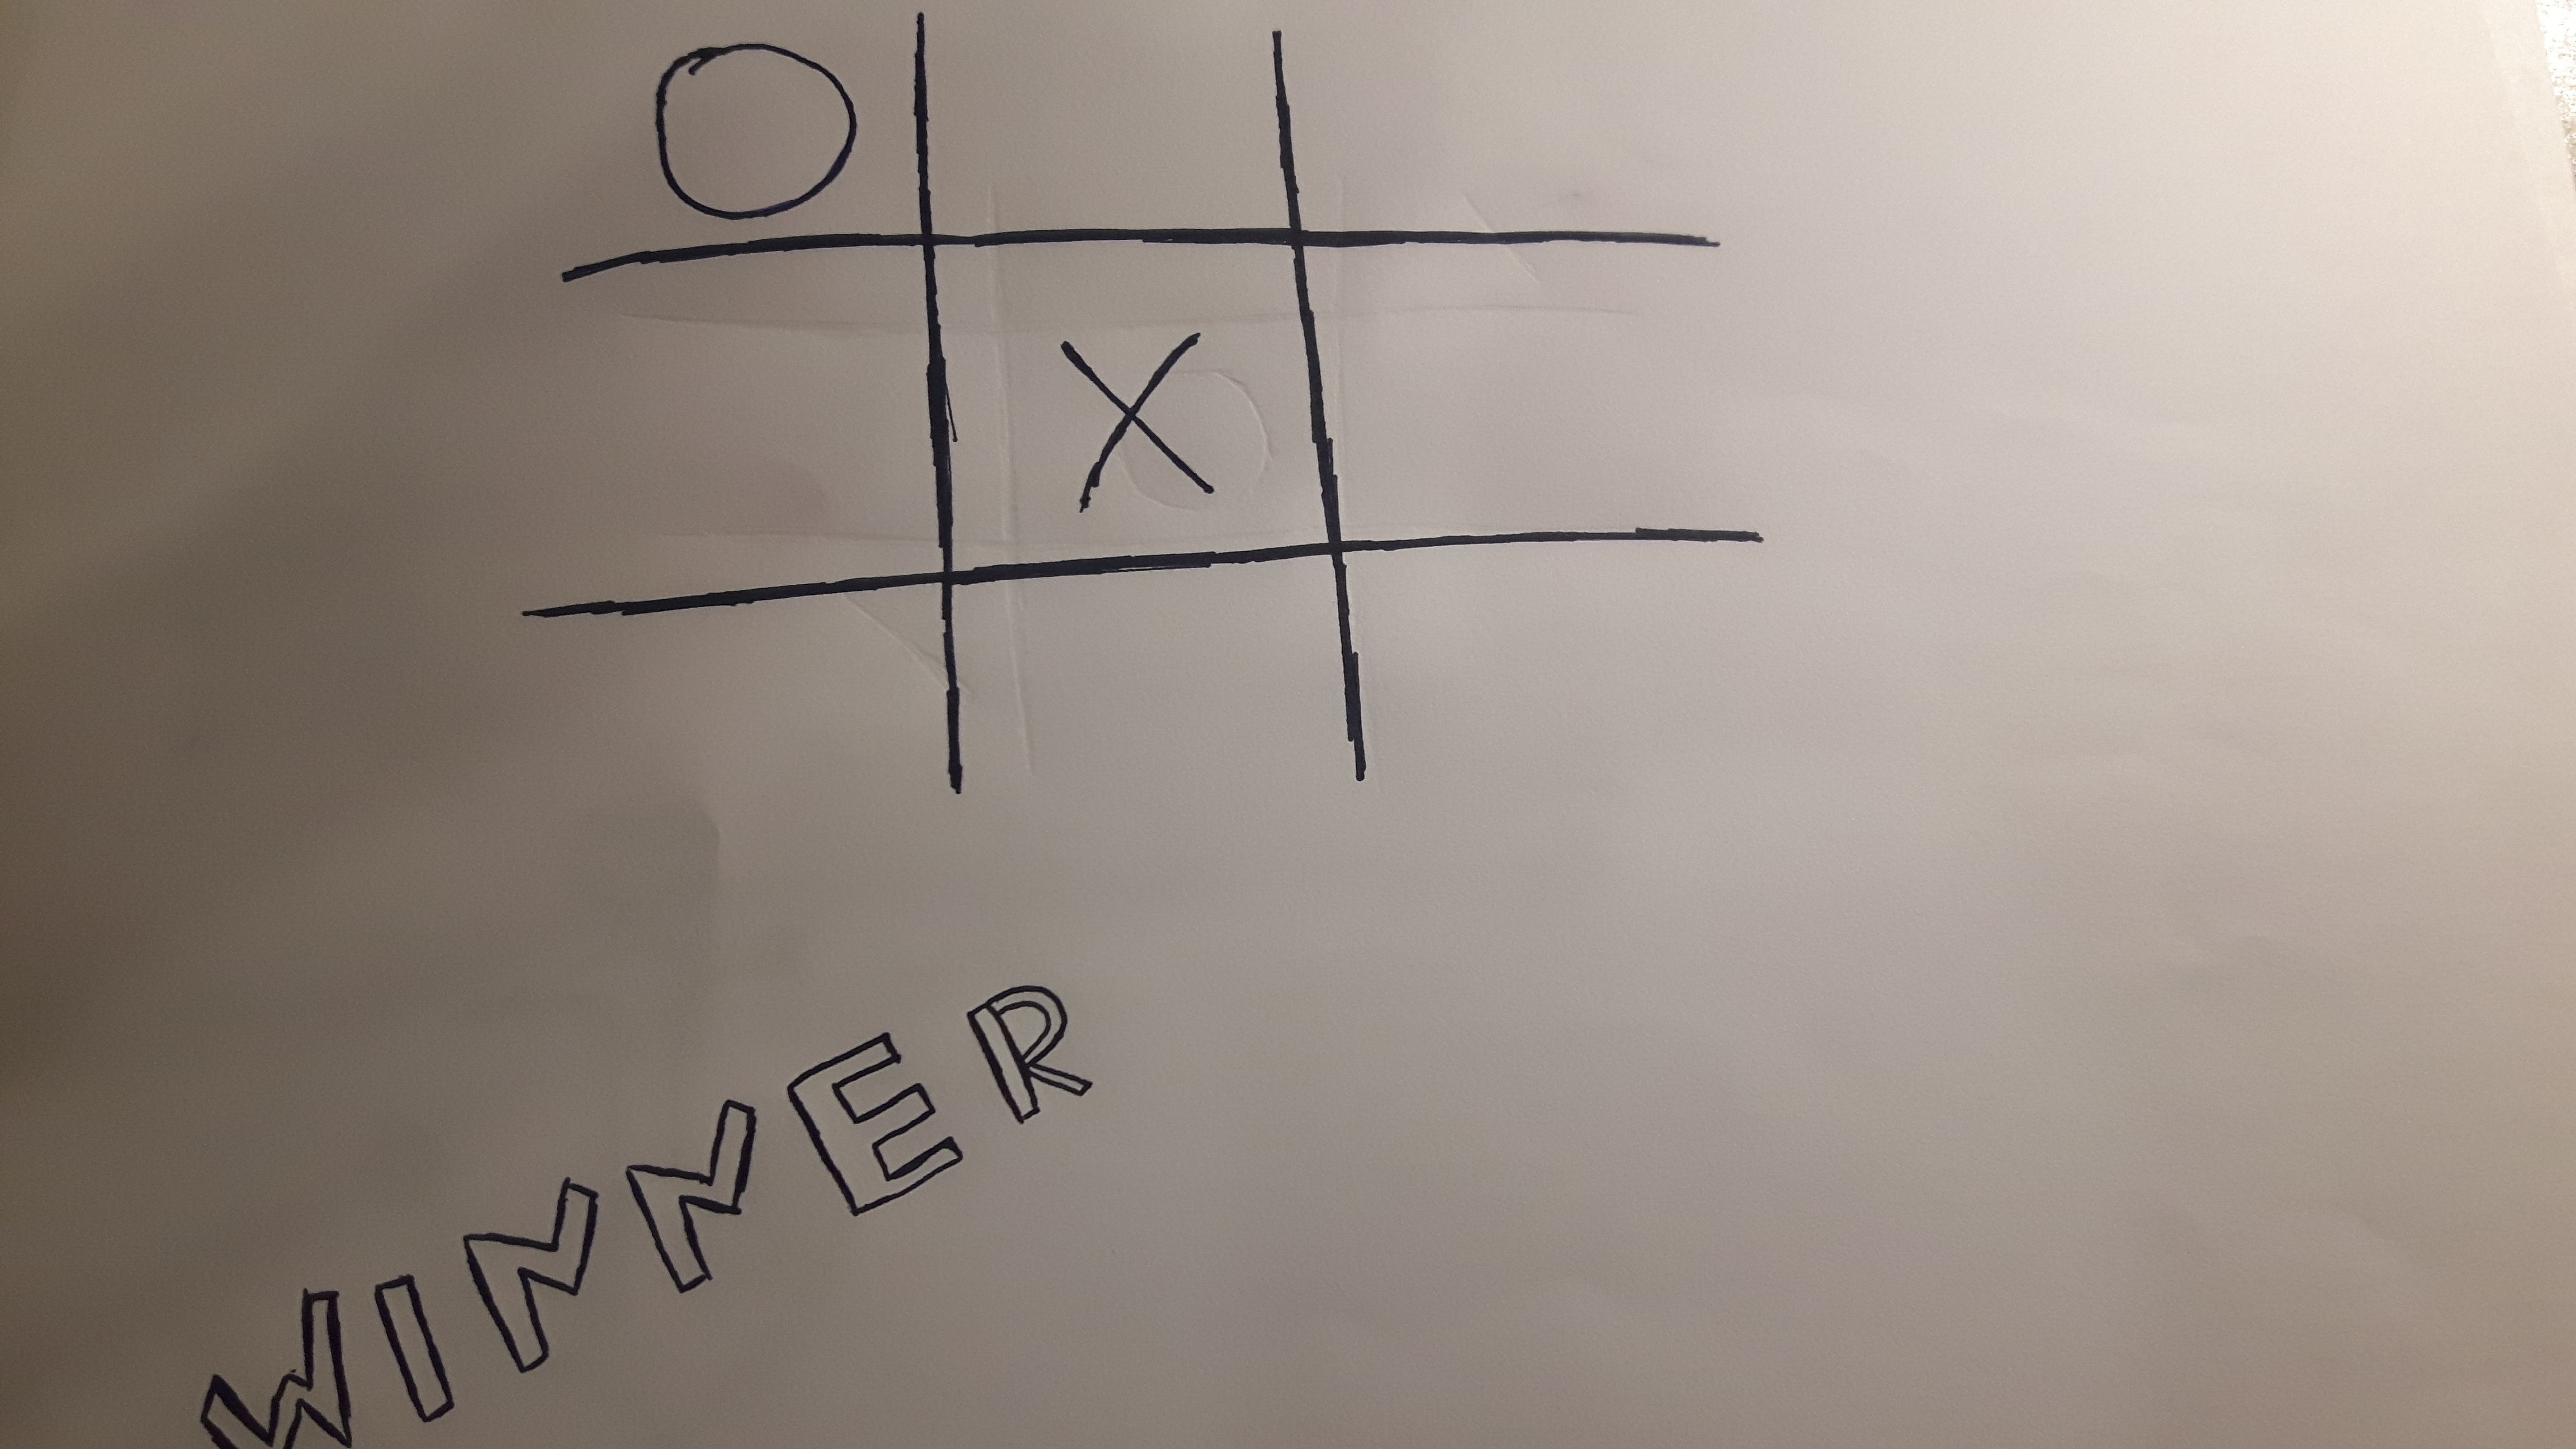 O
X
WINNER